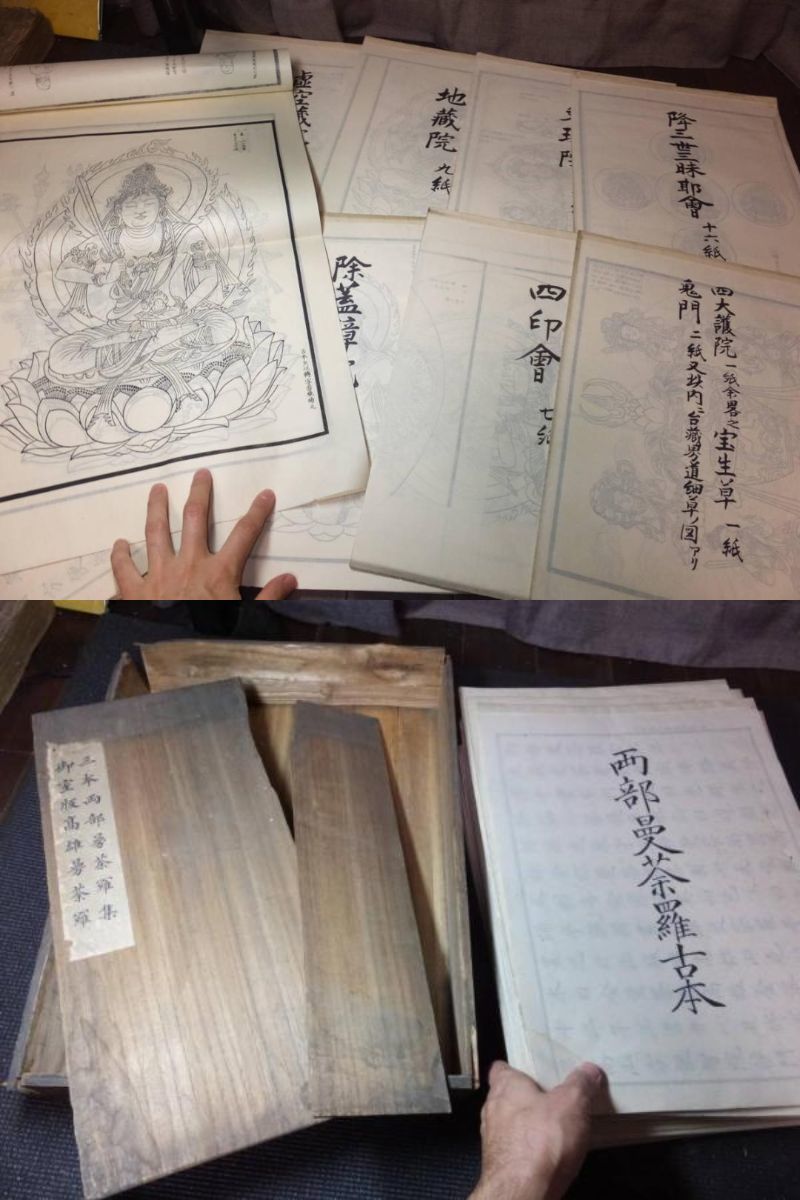 虚空藏
地藏院 九紙
降三世三昧耶會 十六紙
除蓋障
四印會 七紙
四大護院 一紙余畧之 宝生草 一紙
鬼門 二紙又此内ニ台藏界道細草ノ図アリ
三本両部曼荼羅集
御室版高雄曼荼羅
両部曼荼羅古本